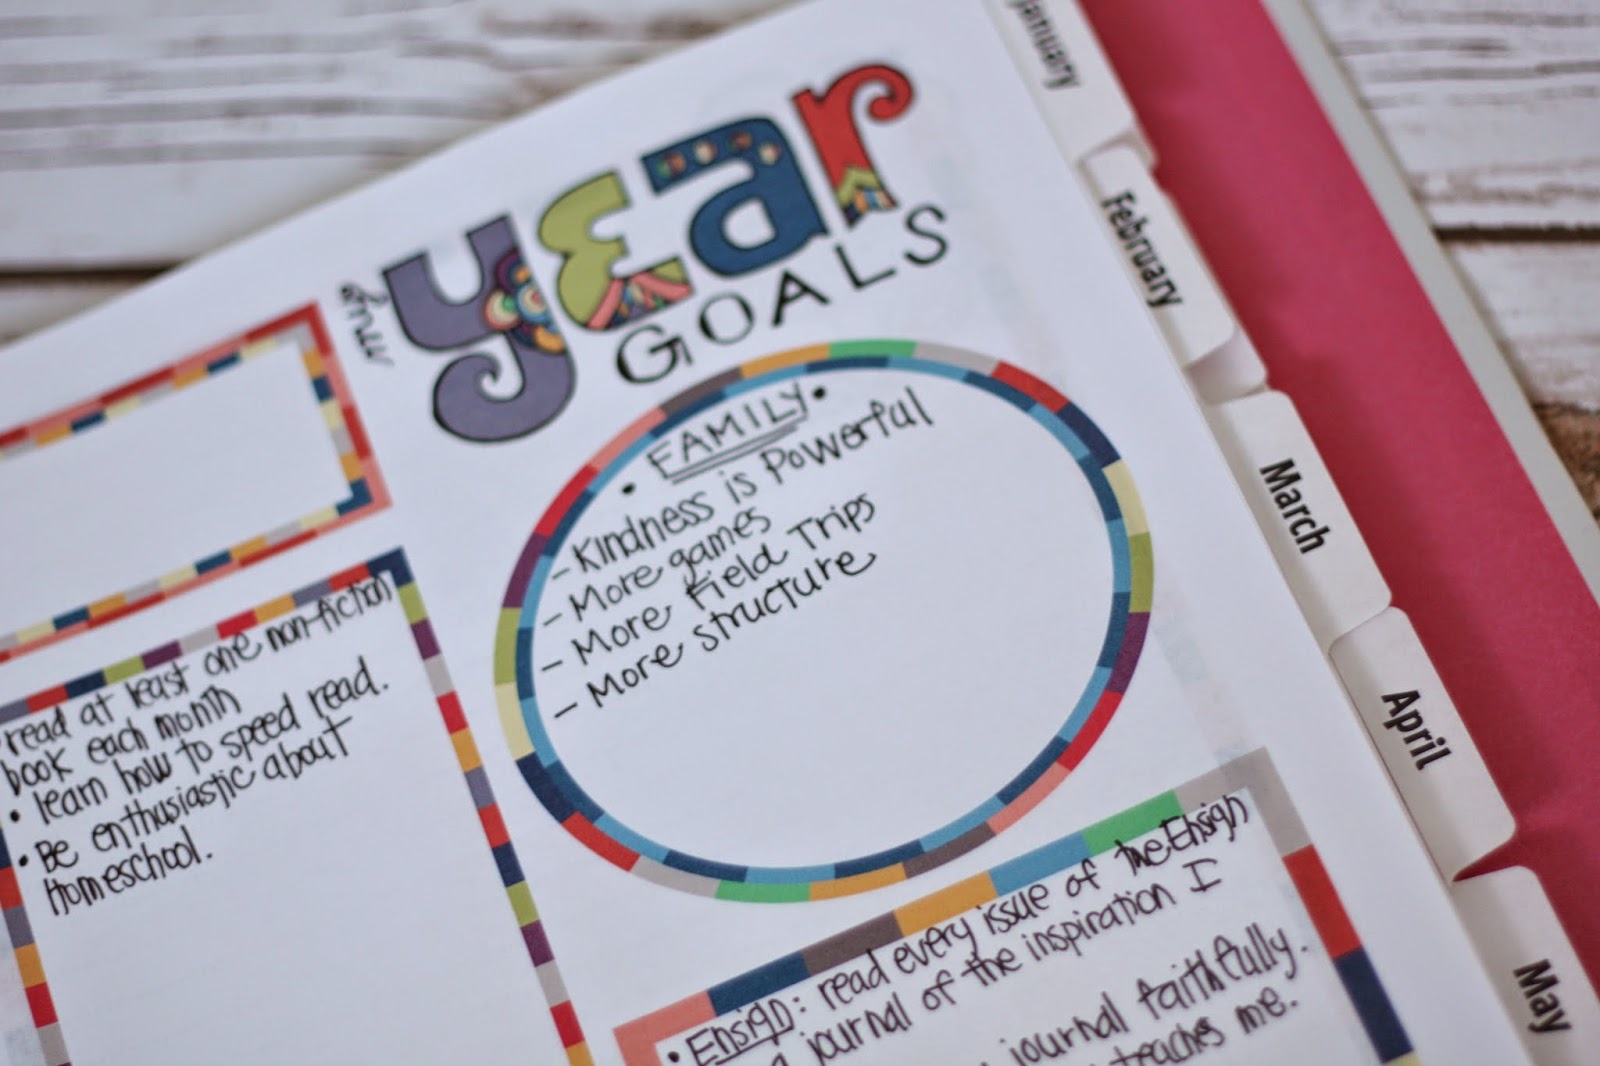 my
year
GOALS
• FAMILY •
- Kindness is Powerful
- More games
- More Field Trips
- More structure
read at least one non-fiction
book each month
• learn how to speed read.
• Be enthusiastic about
Homeschool.
• Ensign: read every issue of the Ensign
journal of the inspiration I
journal faithfully.
teaches me.
January
February
March
April
May